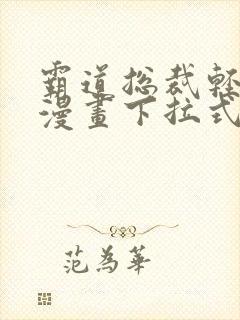 霸道总裁輕
漫畫下拉式
范為華